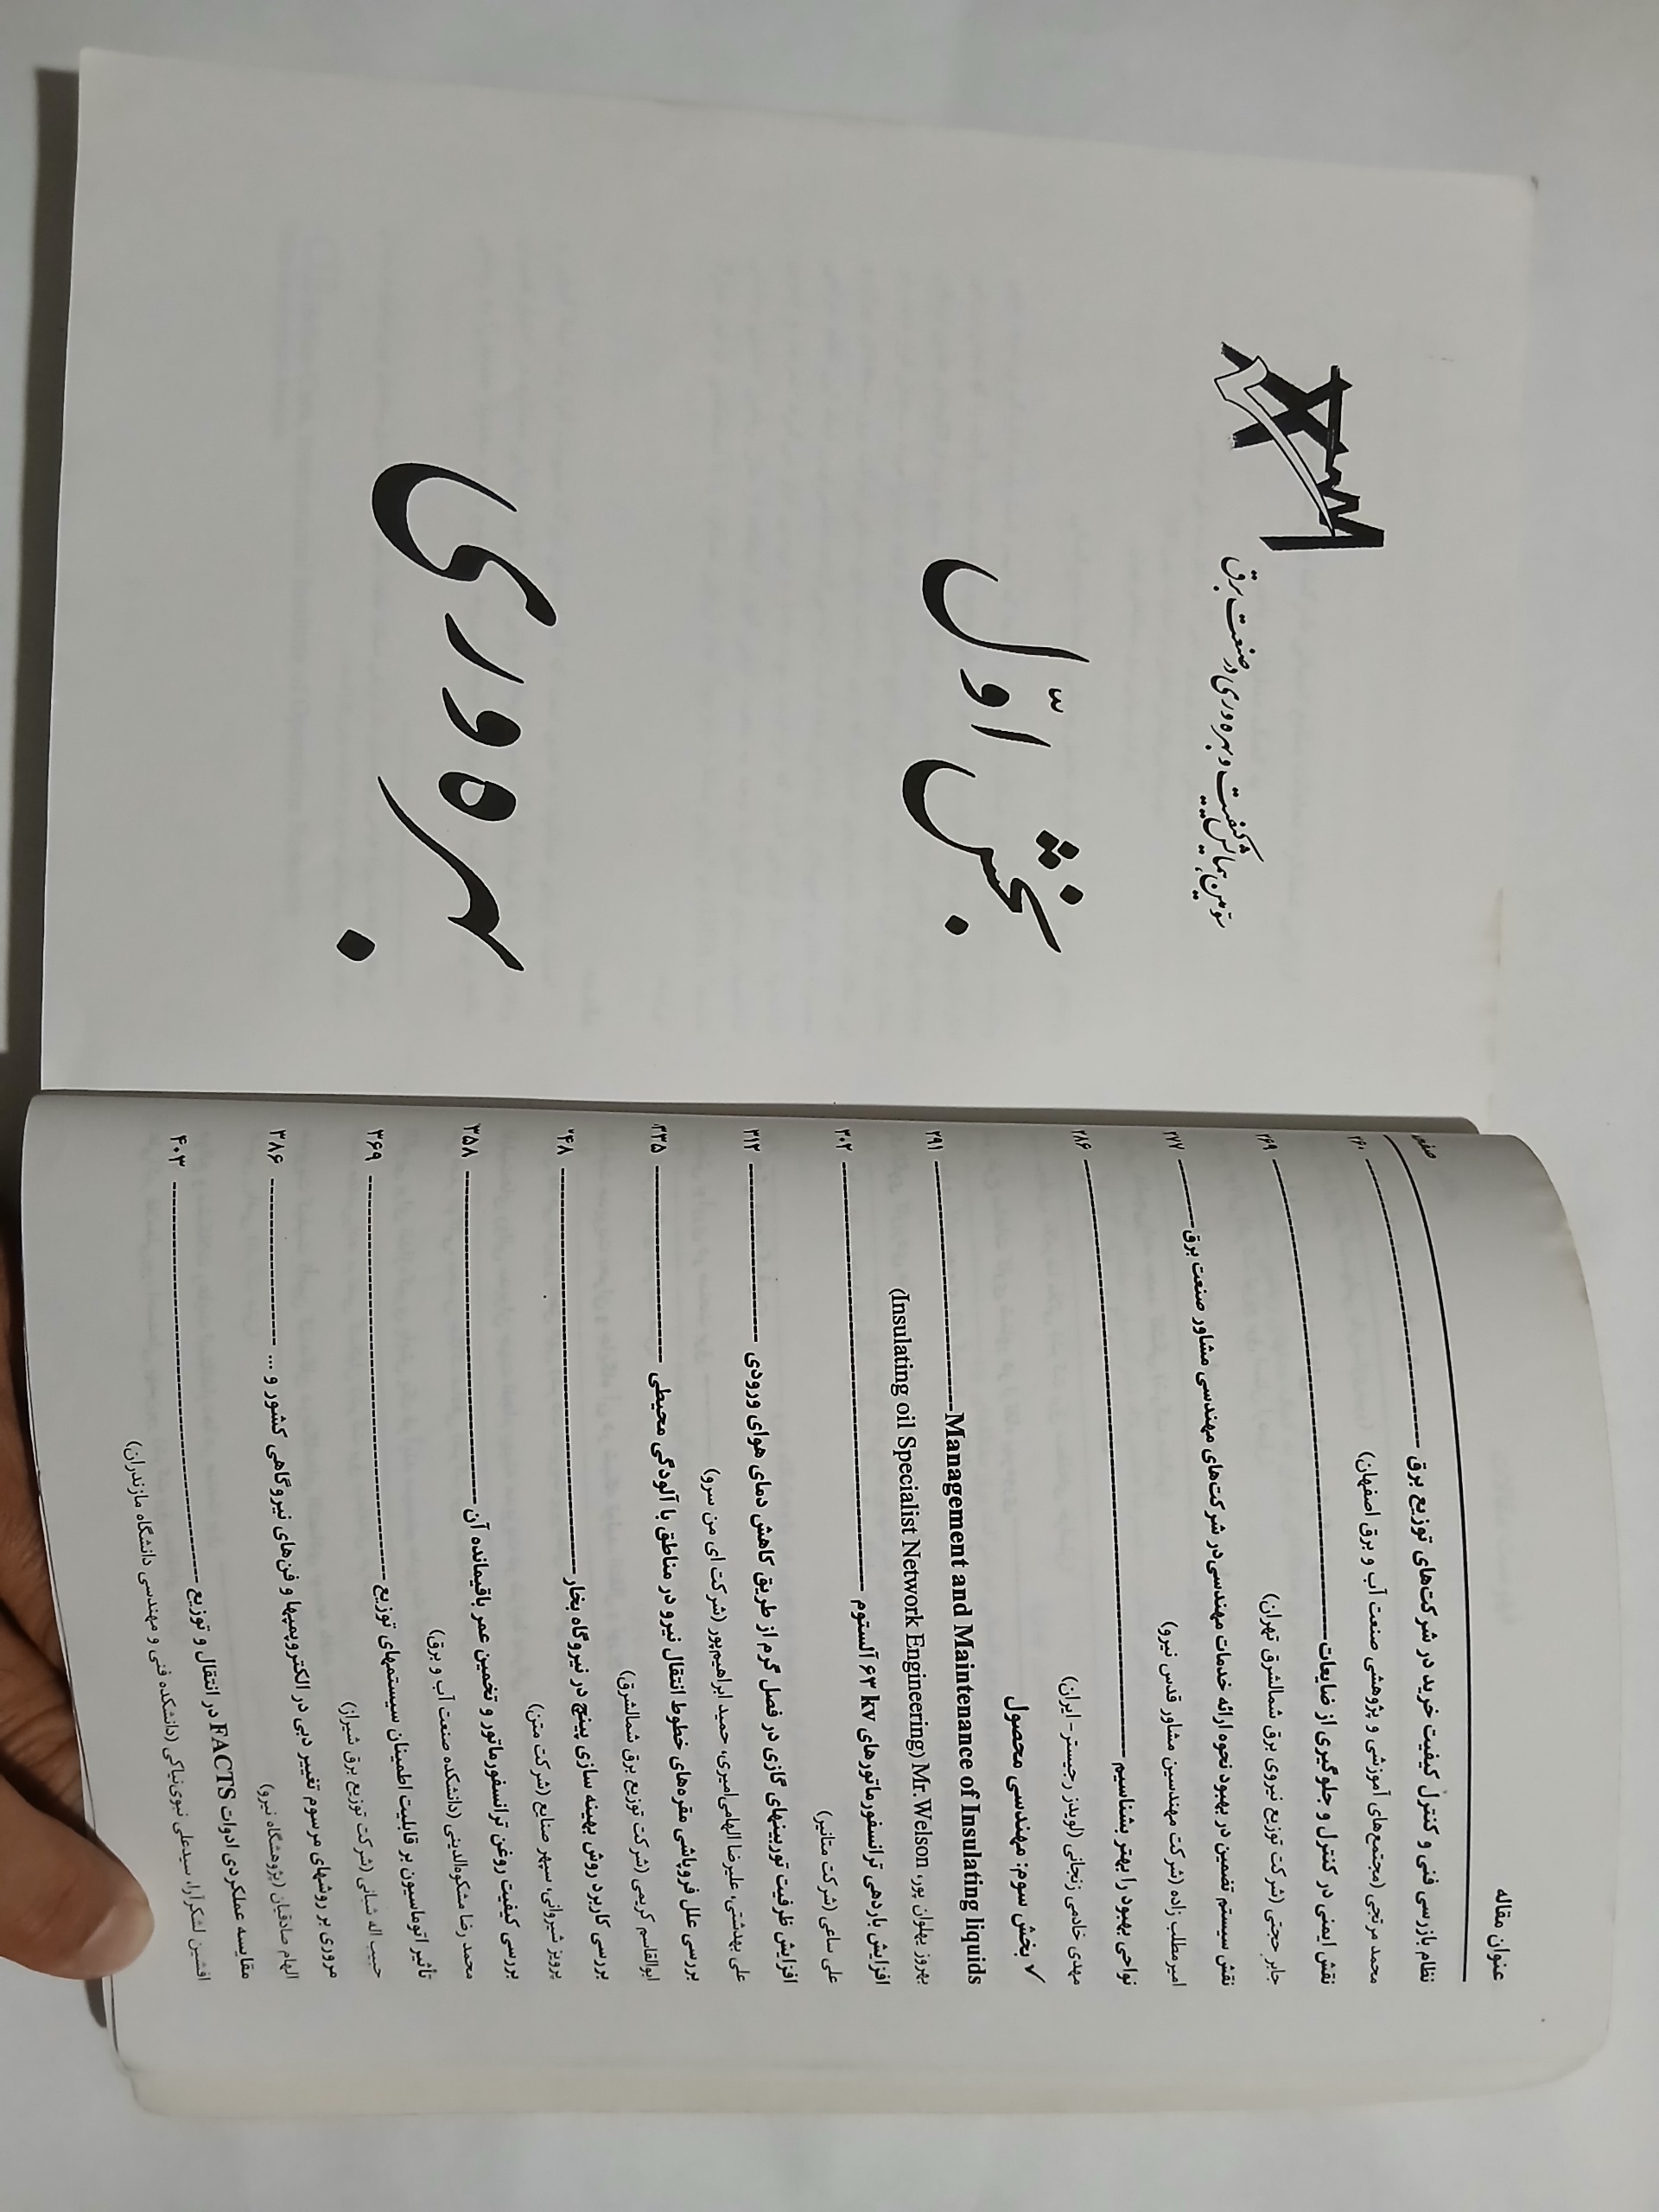 عنوان مقاله صفحه
نظام بازرسی فنی و کنترل کیفیت خرید در شرکت‌های توزیع برق ---------- ۲۶۰
محمد مرتجی (مجتمع‌های آموزشی و پژوهشی صنعت آب و برق اصفهان)
نقش ایمنی در کنترل و جلوگیری از ضایعات ---------- ۲۶۹
جابر حجتی (شرکت توزیع نیروی برق شمالشرق تهران)
نقش سیستم تضمین در بهبود نحوه ارائه خدمات مهندسی در شرکت‌های مهندسی مشاور صنعت برق ---- ۲۷۷
امیرمطلب زاده (شرکت مهندسین مشاور قدس نیرو)
نواحی بهبود را بهتر بشناسیم ---------- ۲۸۶
مهدی خادمی زنجانی (لویدز رجیستر - ایران)
✓ بخش سوم: مهندسی محصول
Management and Maintenance of Insulating liquids ---------- ۲۹۱
بهروز پهلوان پور، Mr.Welson (Insulating oil Specialist Network Engineering)
افزایش باردهی ترانسفورماتورهای ۶۳ kv آلستوم ---------- ۳۰۲
علی ساعی (شرکت متانیر)
افزایش ظرفیت توربینهای گازی در فصل گرم از طریق کاهش دمای هوای ورودی ---------- ۳۱۲
علی بهشتی، علیرضا الهامی‌امیری، حمید ابراهیم‌پور (شرکت ای من سرو)
بررسی علل فروپاشی مقره‌های خطوط انتقال نیرو در مناطق با آلودگی محیطی ---------- ۳۳۵
ابوالقاسم کریمی (شرکت توزیع برق شمالشرق)
بررسی کاربرد روش بهینه سازی پینچ در نیروگاه بخار ---------- ۳۴۸
پرویز شیروانی، سپهر صنایع (شرکت متن)
بررسی کیفیت روغن ترانسفورماتور و تخمین عمر باقیمانده آن ---------- ۳۵۸
محمد رضا مشکوه‌الدینی (دانشکده صنعت آب و برق)
تأثیر اتوماسیون بر قابلیت اطمینان سیستمهای توزیع ---------- ۳۶۹
حبیب اله شبانی (شرکت توزیع برق شیراز)
مروری بر روشهای مرسوم تغییر دبی در الکتروپمپها و فن‌های نیروگاهی کشور و ... ---------- ۳۸۶
الهام صادقیان (پژوهشگاه نیرو)
مقایسه عملکردی ادوات FACTS در انتقال و توزیع ---------- ۴۰۳
افشین لشکرآرا، سیدعلی نبوی‌نیاکی (دانشکده فنی و مهندسی دانشگاه مازندران)
سومین همایش کیفیت و بهره‌وری در صنعت برق
بخش اوّل
بهره وری